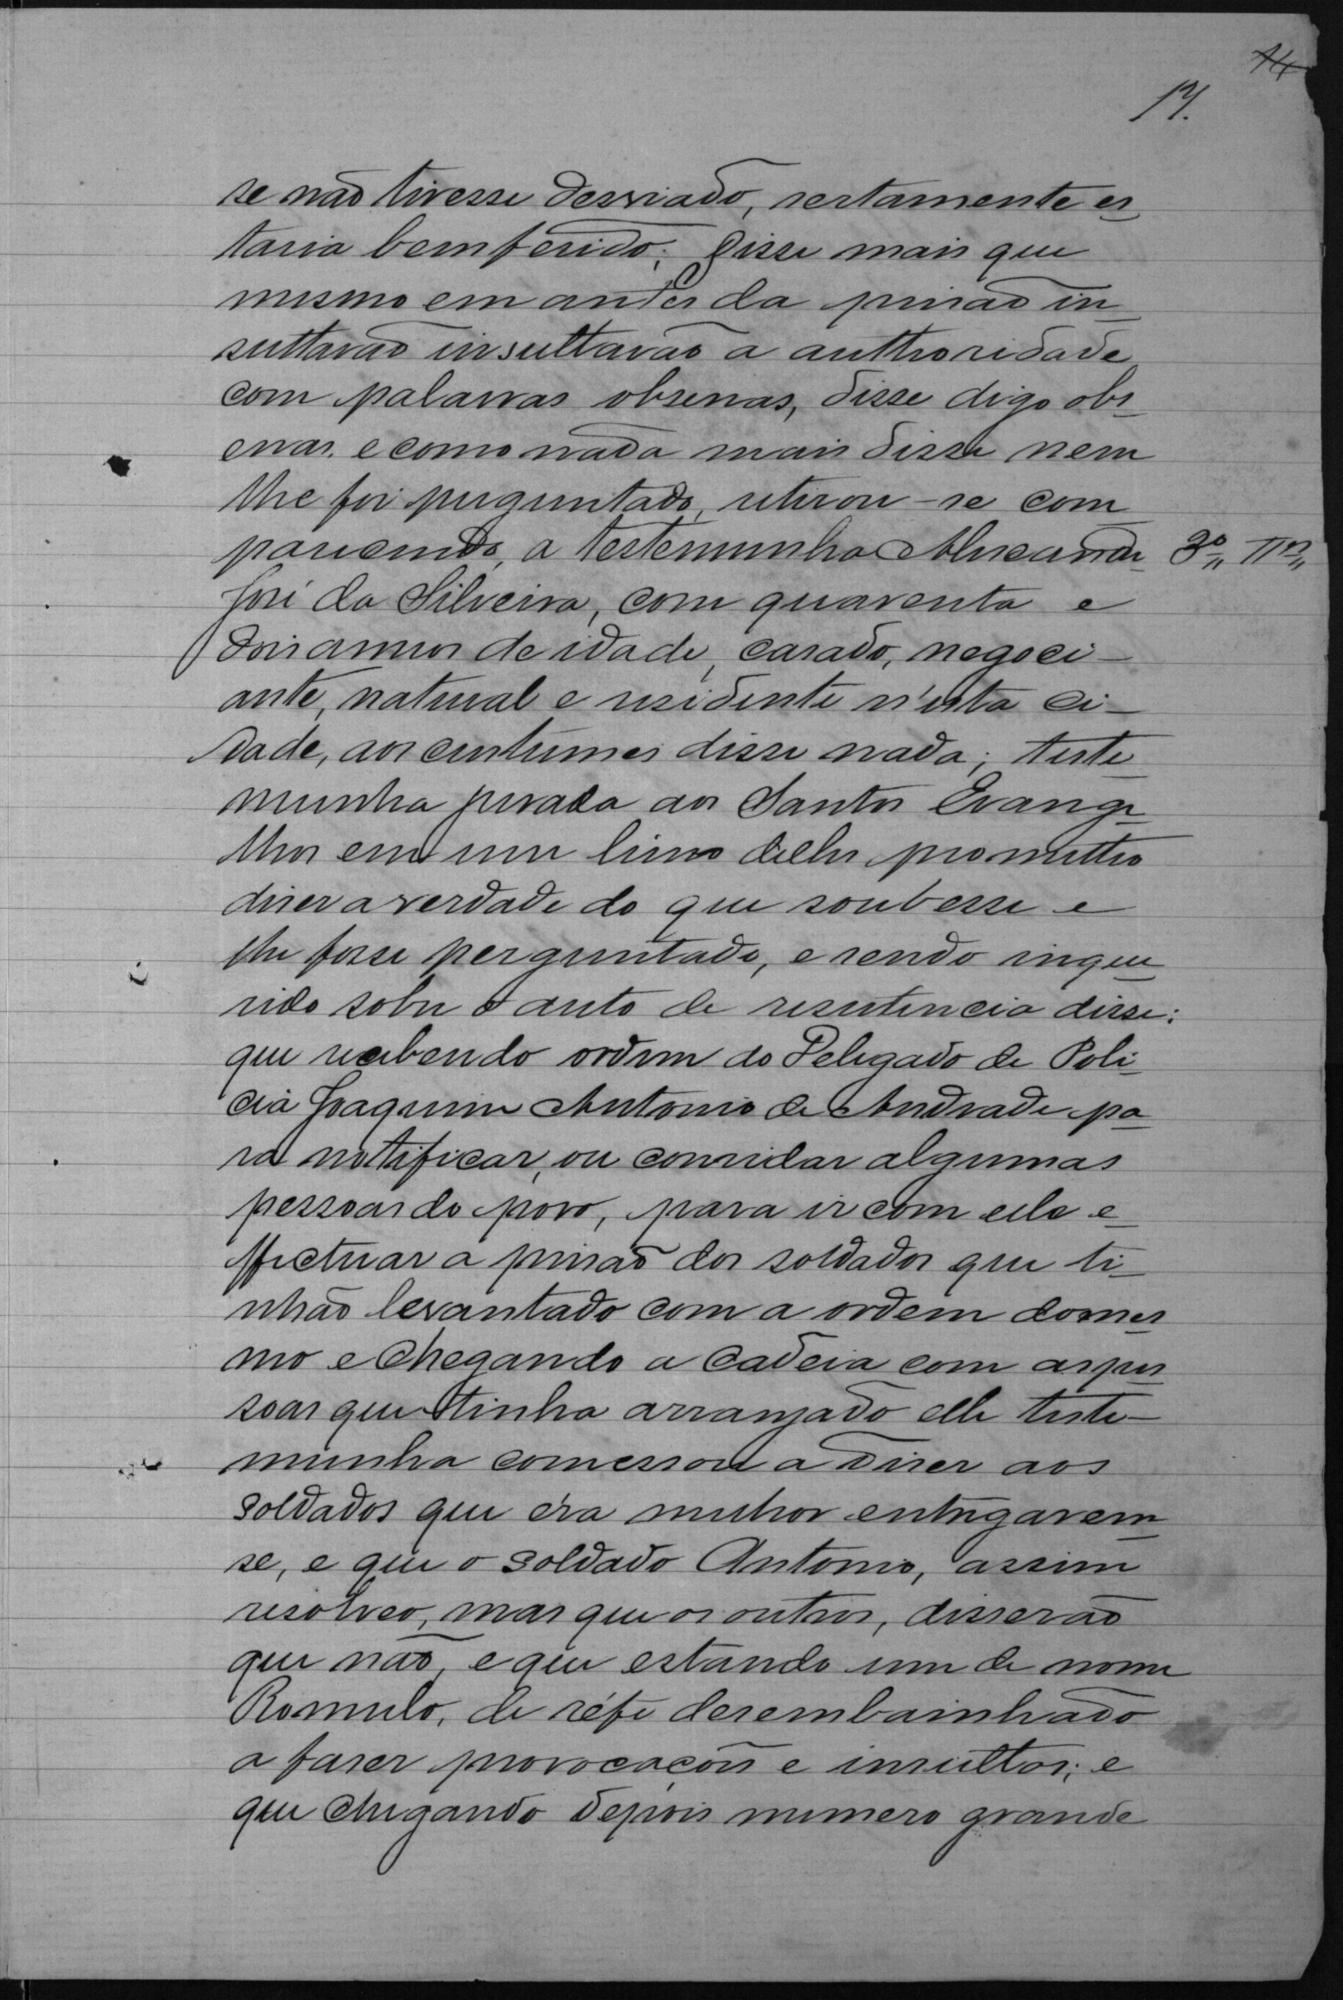 14
17.
se não tivesse desviado, sertamente es
taria bem ferido; Disse mais que
mesmo em antes da prisão in
sultavão insultavão a authoridade
com palavras obsenas, disse digo obs
enas. e como nada mais disse nem
lhe foi perguntado, retirou-se com
parecendo, a testemunha Alexandre 3ª Tª
José da Silveira, com quarenta e
dois annos de idade, casado, negoci-
ante, natural e residente n'esta ci-
dade, aos custumes disse nada; teste
munha jurada aos Santos Evange
lhos em um livro delles prometteo
diser a verdade do que soubesse e
lhe fosse perguntado, e sendo inque
rido sobre o auto de resistencia disse:
que recebendo ordem do Delegado de Poli
cia Joaquim Antonio de Andrade pa
ra notificar, ou convidar algumas
pessoas do povo, para ir com elle e
ffectuar a prisão dos soldados que ti-
nhão levantado com a ordem do mes
mo e chegando a cadeia com as pes
soas que tinha arranjado elle teste-
munha comessou a diser aos
soldados que éra melhor entregarem
se, e que o soldado Antonio, assim
resolveo, mas que os outros, disserão
que não, e que estando um de nome
Romulo, de réfe desembainhado
a faser provocações e insultos; e
que chegando depois numero grande